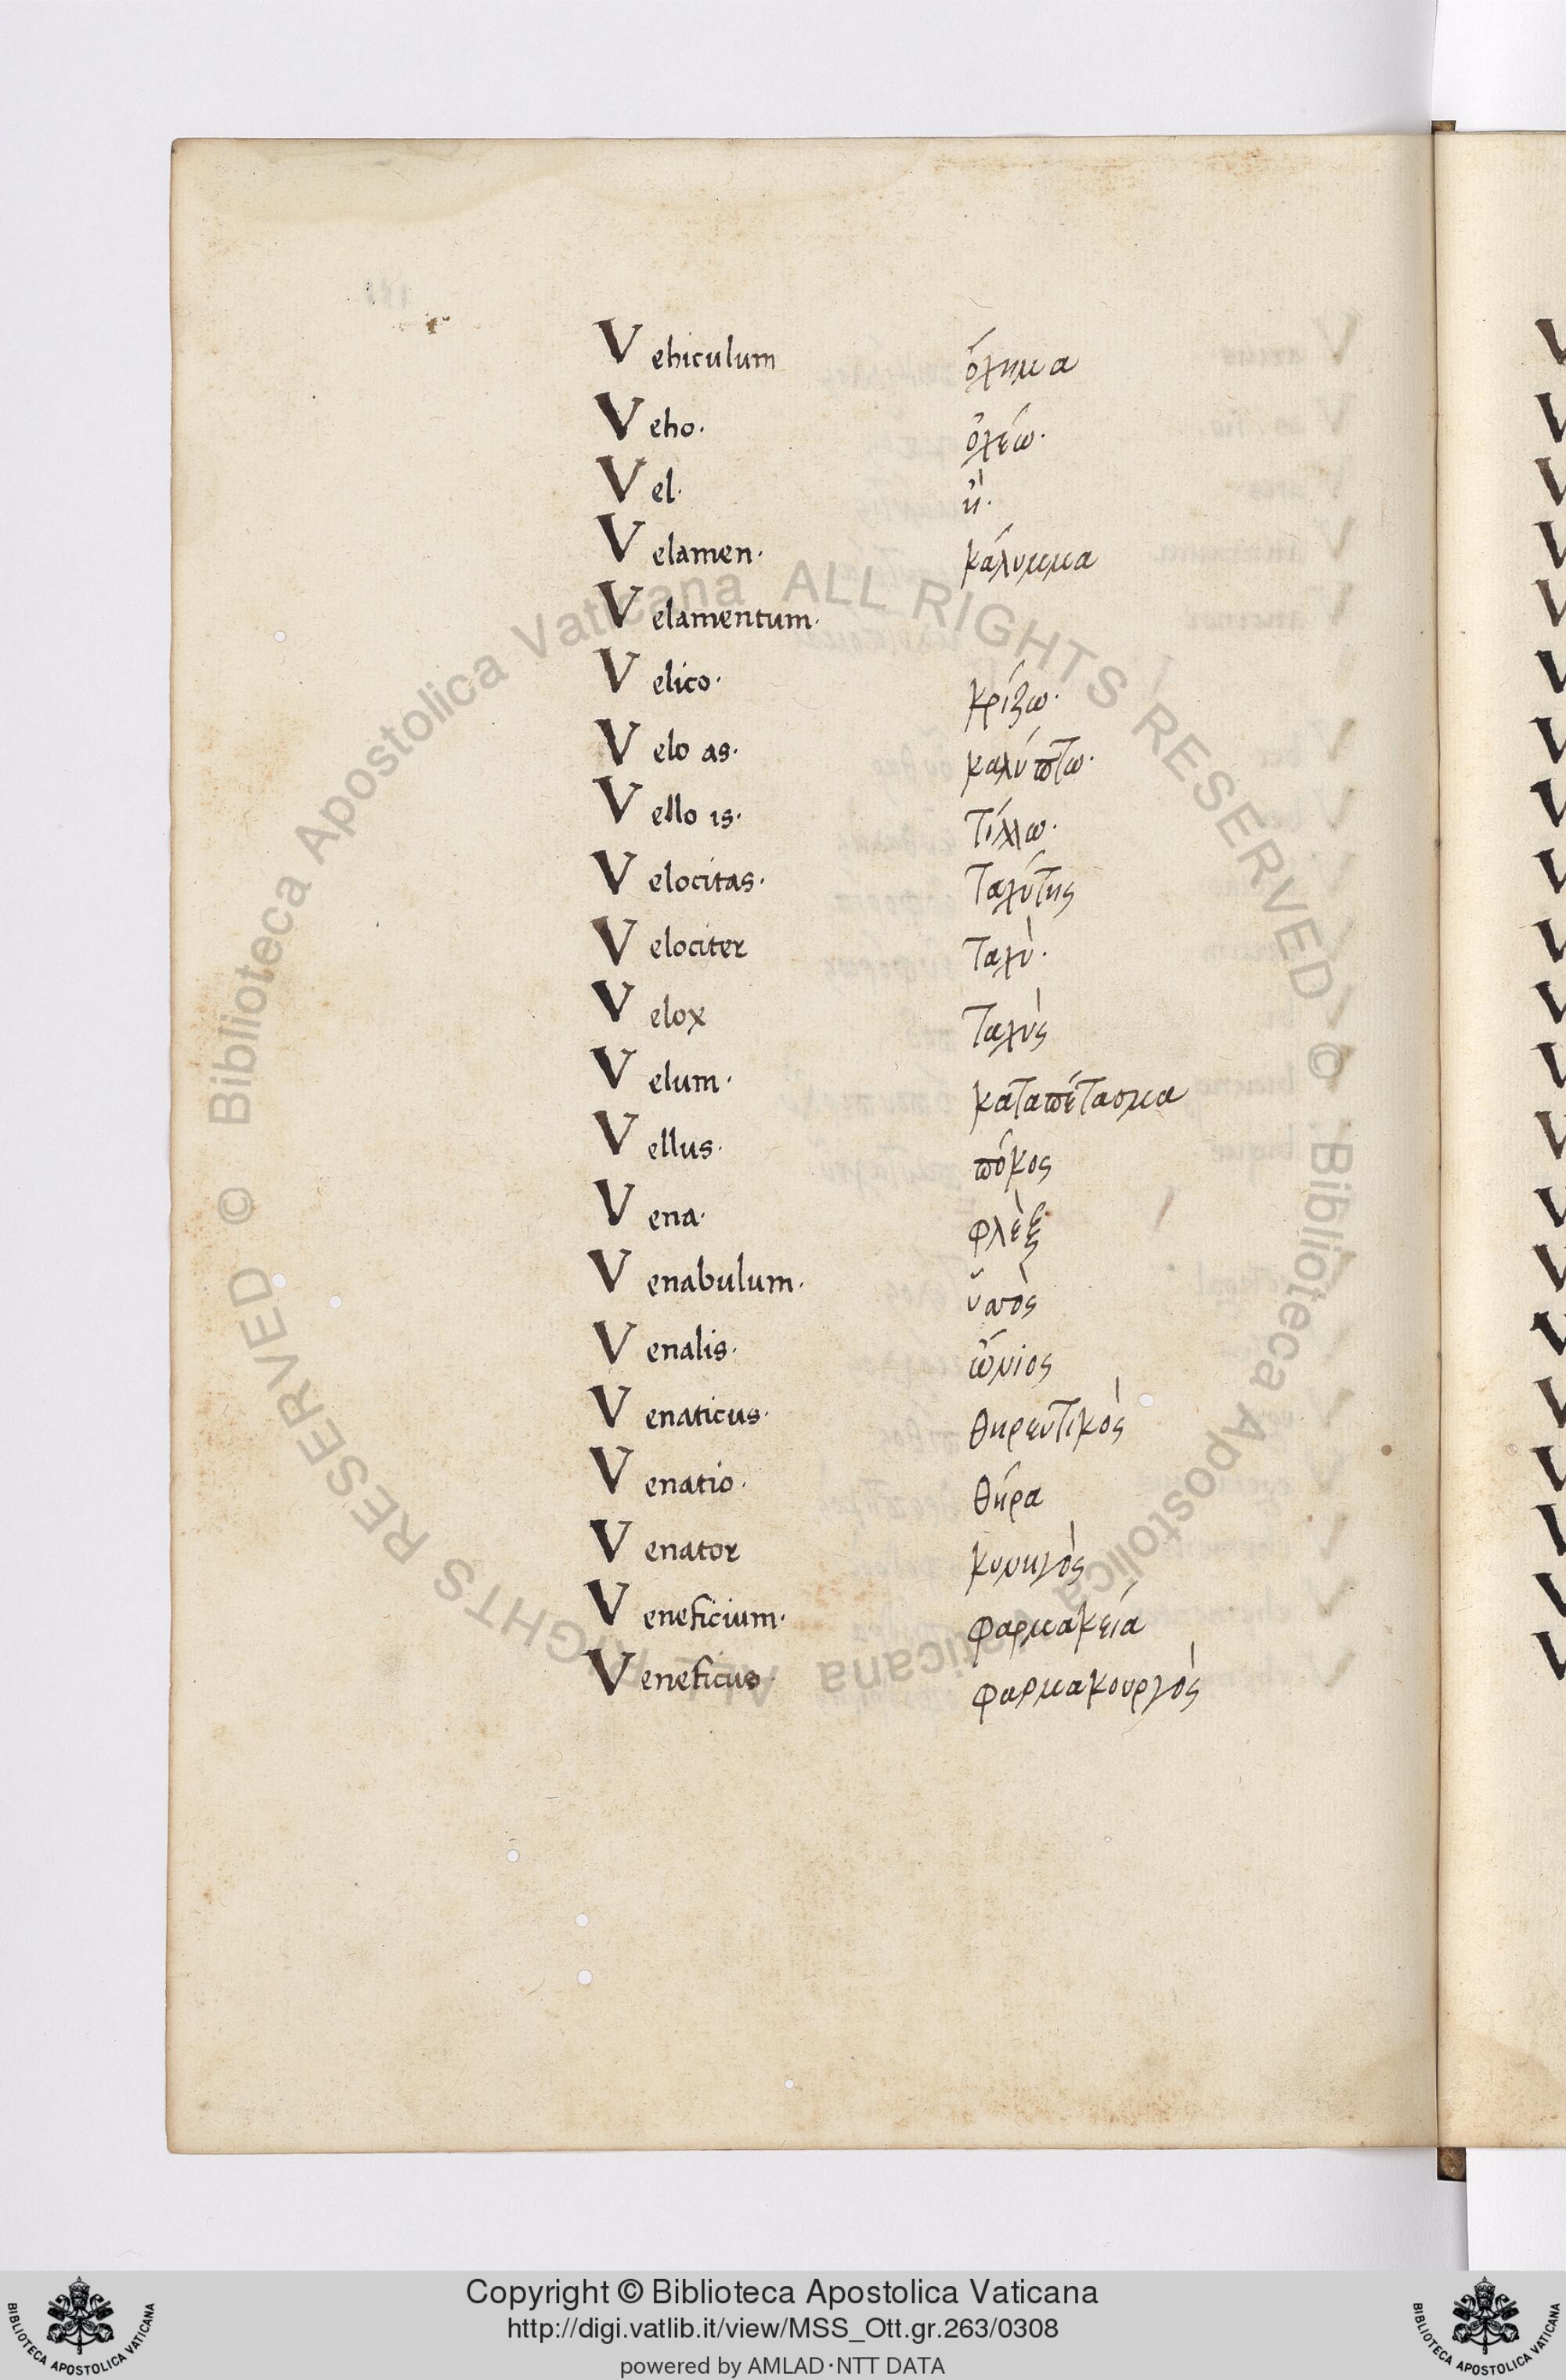 Vehiculum ὄχημα
Veho. ὀχέω.
Vel. ἢ.
Velamen. κάλυμμα
Velamentum.
Velico. κρίζω.
Velo as. καλύπτω.
Vello is. τίλλω.
Velocitas. ταχύτης
Velociter ταχὺ.
Velox ταχὺς
Velum. καταπέτασμα
Vellus. πόκος
Vena. φλὲξ
Venabulum.
Venalis. ὤνιος
Venaticus. θηρευτικὸς
Venatio. θήρα
Venator κυνηγὸς
Veneficium. φαρμακεία
Veneficus. φαρμακουργὸς
© Biblioteca Apostolica Vaticana ALL RIGHTS RESERVED
© Biblioteca Apostolica Vaticana ALL RIGHTS RESERVED
Copyright © Biblioteca Apostolica Vaticana
http://digi.vatlib.it/view/MSS_Ott.gr.263/0308
powered by AMLAD·NTT DATA
BIBLIOTECA APOSTOLICA VATICANA
BIBLIOTECA APOSTOLICA VATICANA